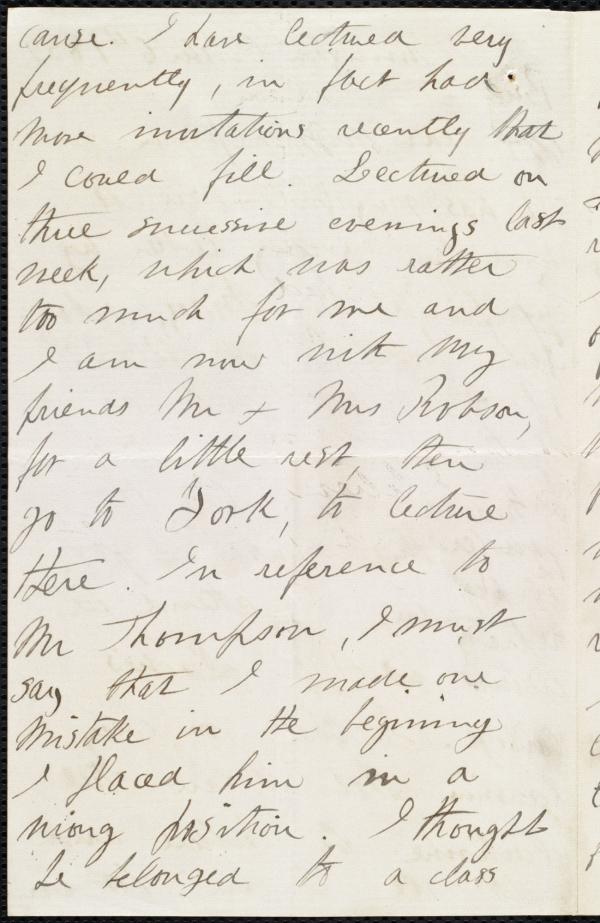 cause. I have lectured very
frequently, in fact had
more invitations recently that
I could fill. Lectured on
three successive evenings last
week, which was rather
too much for me and
I am now with my
friends Mr & Mrs Robson,
for a little rest, then
go to York, to lecture
there. In reference to
Mr Thompson, I must
say that I made one
mistake in the begining
I placed him in a
wrong position. I thought
he belonged to a class